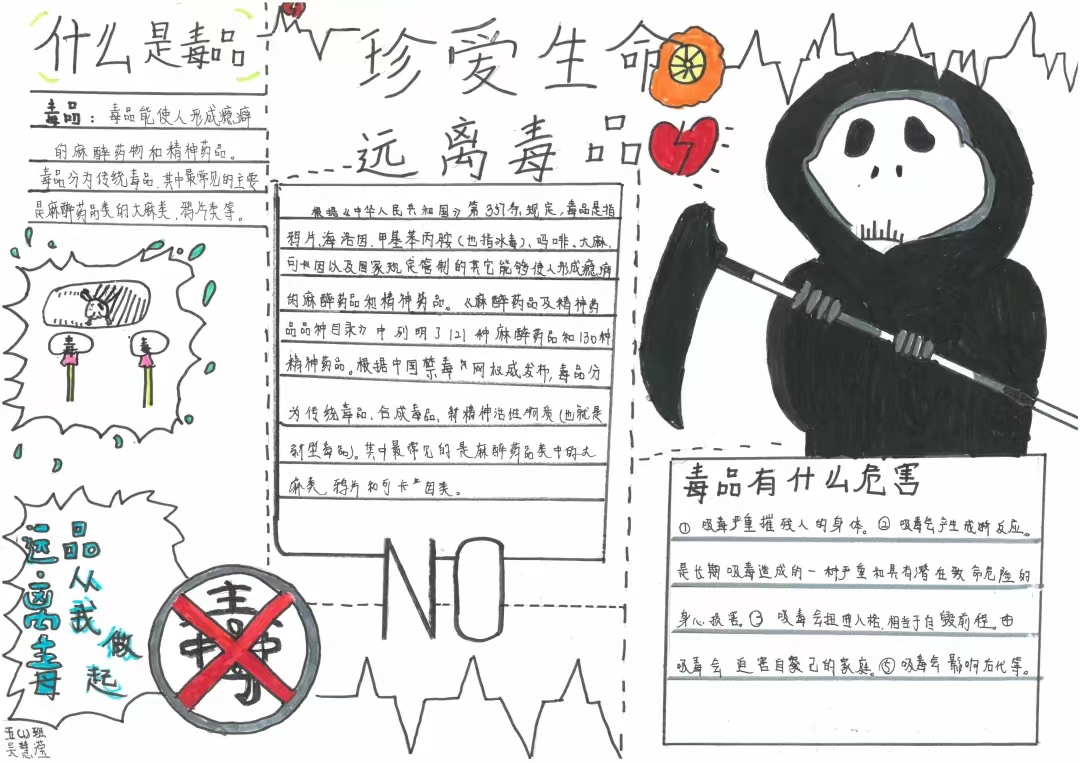 什么是毒品
毒品：毒品能使人形成瘾癖
的麻醉药物和精神药品。
毒品分为传统毒品，其中最常见的主要
是麻醉药品类的大麻类，鸦片类等。
毒
毒
远离毒
品从我做起
毒
五(3)班
吴慧莹
珍爱生命
远离毒品
根据《中华人民共和国》第357条规定，毒品是指
鸦片、海洛因、甲基苯丙胺（也指冰毒）、吗啡、大麻、
可卡因以及国家规定管制的其它能够使人形成瘾癖
的麻醉药品和精神药品。《麻醉药品及精神药
品品种目录》中列明了121种麻醉药品和130种
精神药品。根据中国禁毒网权威发布，毒品分
为传统毒品、合成毒品、新精神活性物质（也就是
新型毒品）。其中最常见的是麻醉药品类中的大
麻类，鸦片和可卡因类。
NO
毒品有什么危害
① 吸毒严重摧残人的身体。② 吸毒会产生戒断反应。
是长期吸毒造成的一种严重和具有潜在致命危险的
身心损害。③ 吸毒会扭曲人格，相当于自毁前程。由
吸毒会迫害自家己的家庭。⑤ 吸毒会影响后代等。